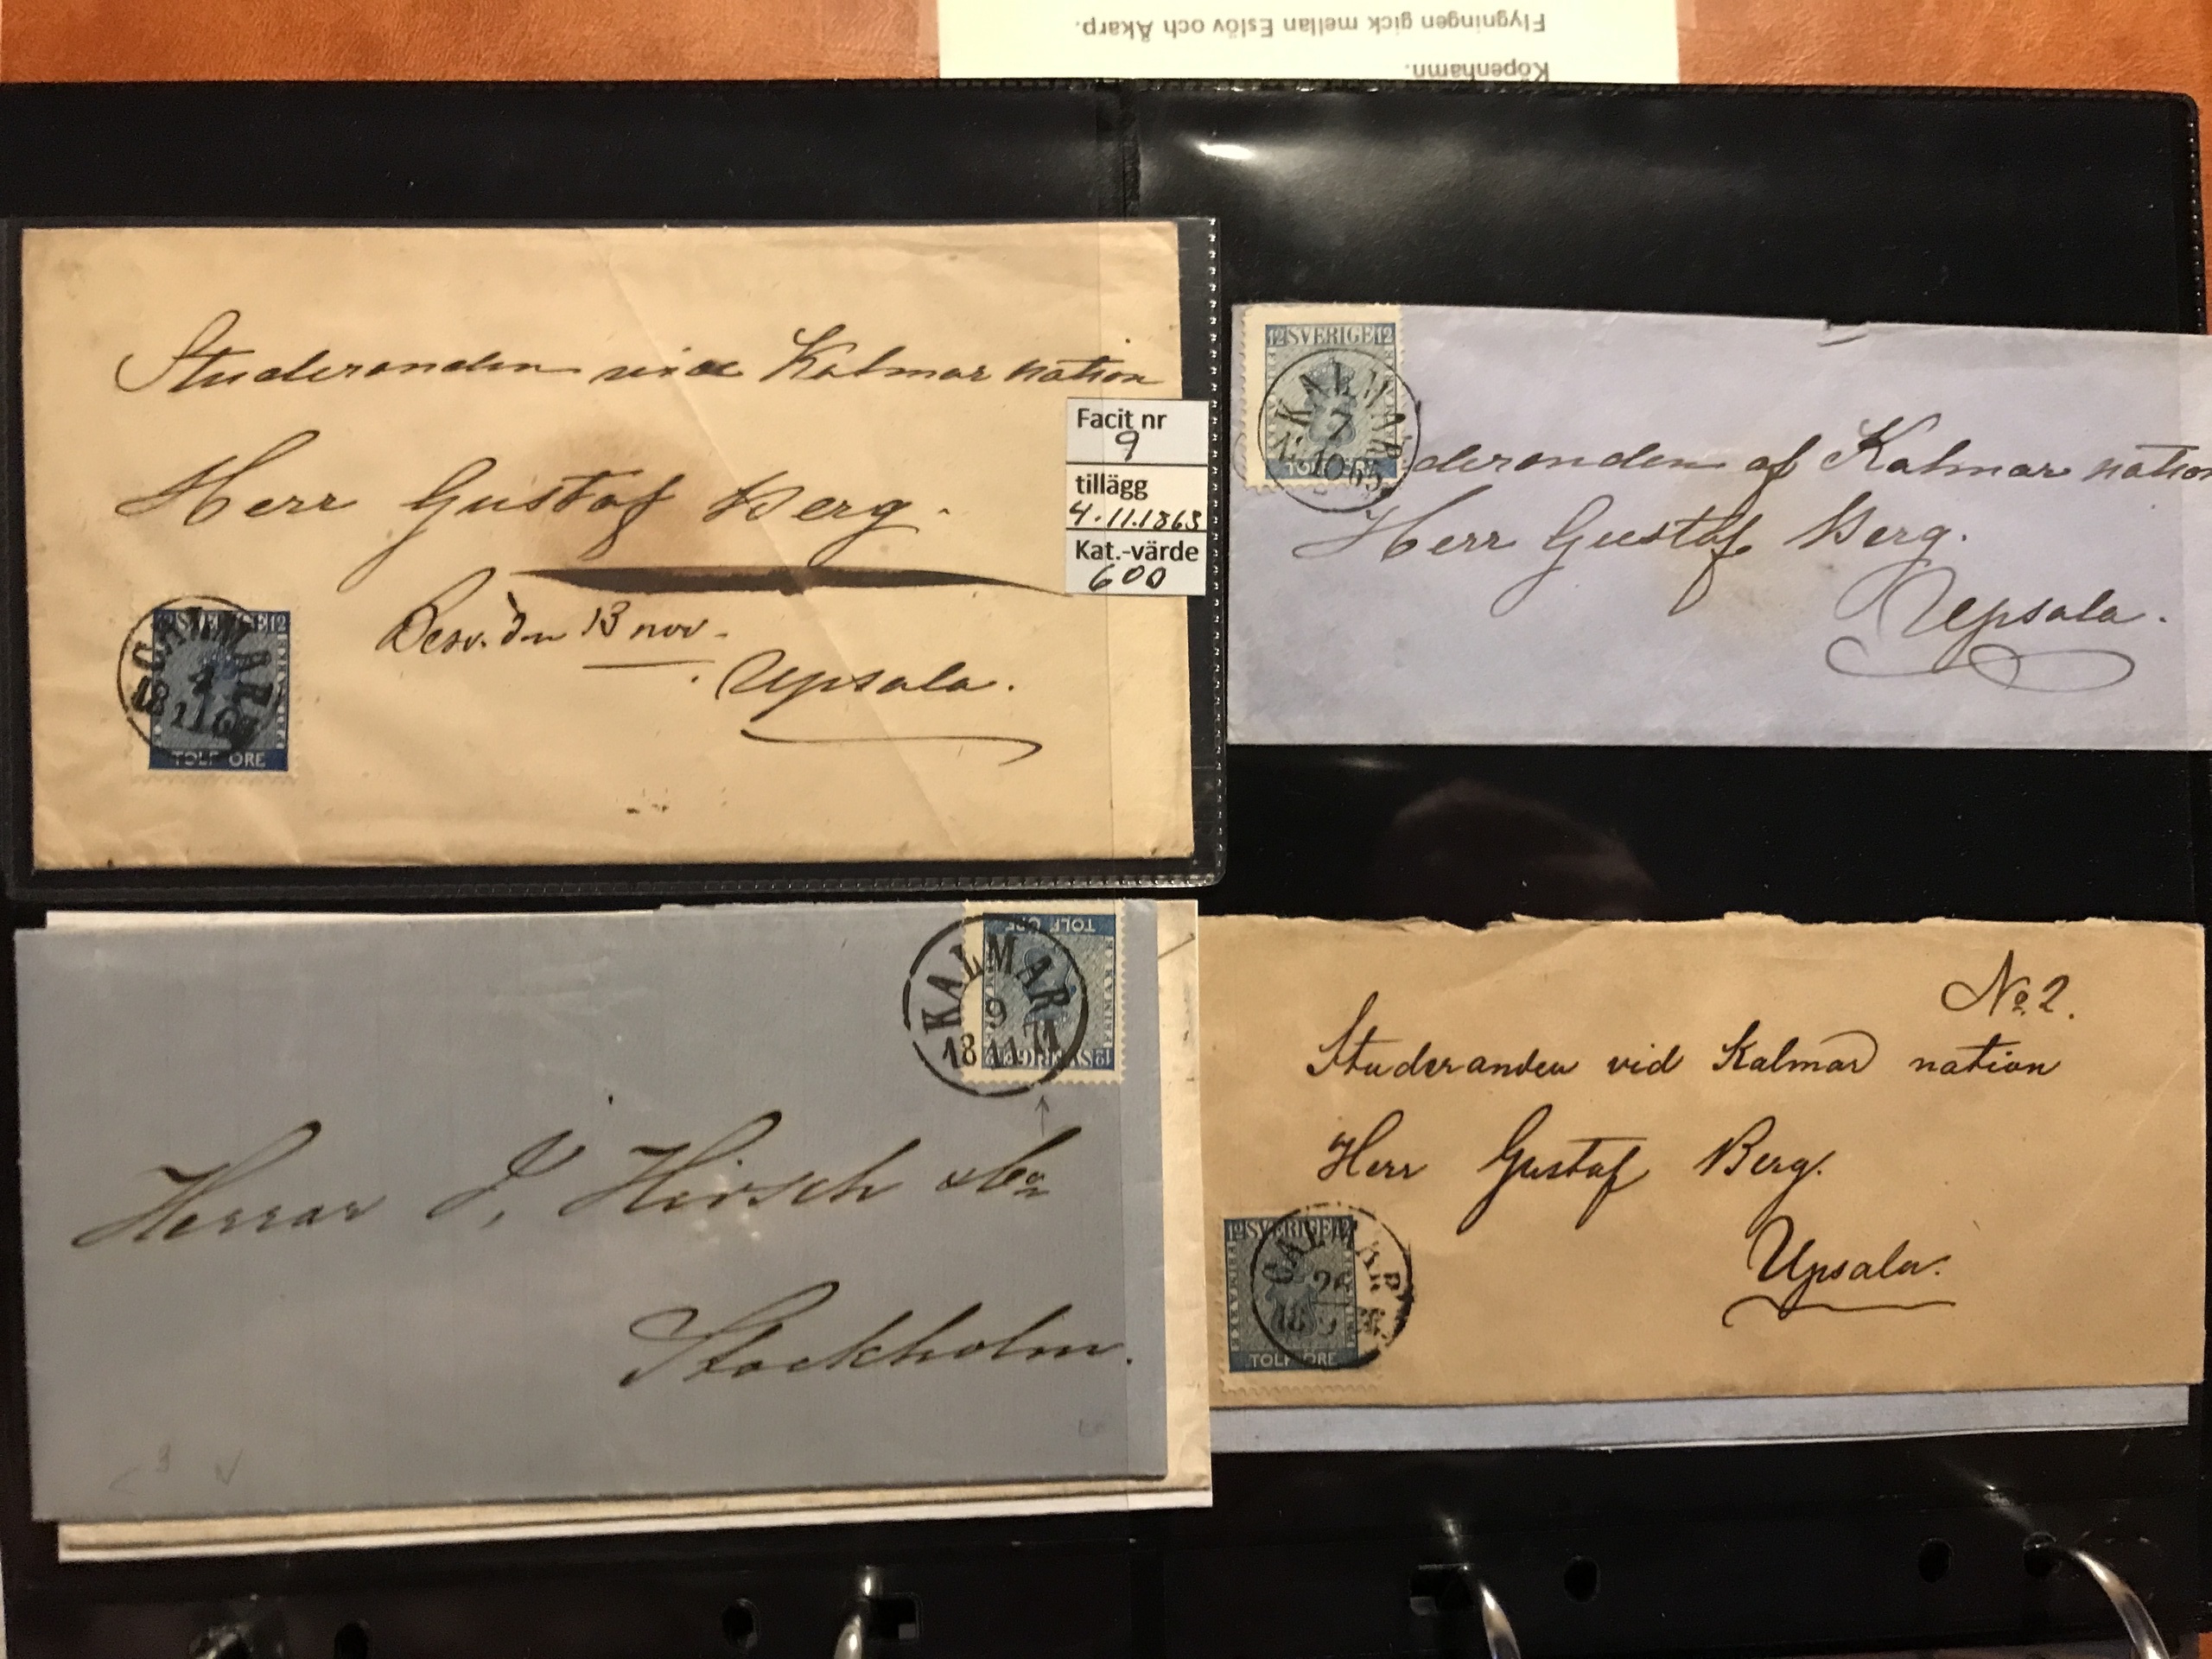 Flygningen gick mellan Eslöv och Åkarp.
Köpenhamn.
Studeranden vid Kalmar nation
Herr Gustaf Berg.
Besv. den 13 nov.
Upsala.
Facit nr
9
tillägg
4.11.1863
Kat.-värde
600
SVERIGE 12
CALMAR
4
18 11 6
TOLF ÖRE
12 SVERIGE 12
KALMAR
7
10 65
deranden af Kalmar nation
Herr Gustaf Berg.
Upsala.
TOLF ÖRE
KALMAR
9
18 11 71
12 SVERIGE
Herrar I. Hirsch &
Stockholm.
No 2.
Studeranden vid Kalmar nation
Herr Gustaf Berg.
Upsala.
12 SVERIGE 12
CALMAR
26
18 9
TOLF ÖRE